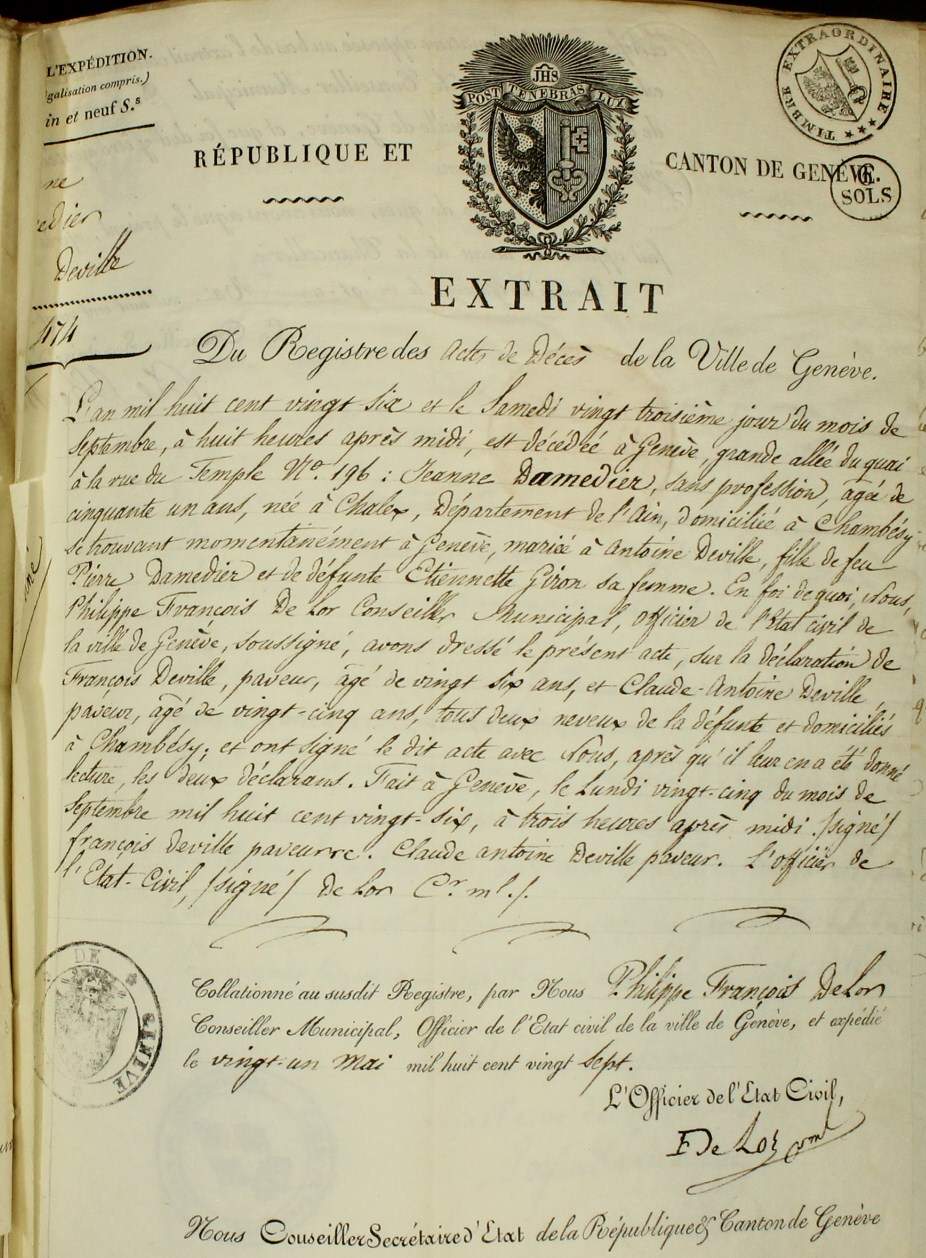 L'EXPÉDITION.
galisation compris.)
in et neuf S.s
ne
edier
Deville
474
JHS
POST TENEBRAS LUX
TIMBRE EXTRAORDINAIRE
6
SOLS
RÉPUBLIQUE ET CANTON DE GENÈVE.
EXTRAIT
Du Registre des Actes de Décès de la Ville de Genève.
L'an mil huit cent vingt-six et le Samedi vingt troisième jour du mois de
Septembre, à huit heures après midi, est décédée à Genève, grande allée du quai
à la rue du Temple No. 196 : Jeanne Damedier, sans profession, agée de
cinquante un ans, née à Chalex, Département de l'Ain, domiciliée à Chambésy
se trouvant momentanément à Genève, mariée à Antoine Deville, fille de feu
Pierre Damedier et de défunte Etiennette Giron sa femme. En foi de quoi, Nous,
Philippe François De Lor Conseiller Municipal, Officier de l'Etat civil de
la ville de Genève, soussigné, avons dressé le présent acte, sur la déclaration de
François Deville, paveur, âgé de vingt six ans, et Claude-Antoine Deville,
paveur, âgé de vingt-cinq ans, tous deux neveux de la défunte et domiciliés
à Chambésy; et ont signé le dit acte avec Nous, après qu'il leur en a été donné
lecture, les deux déclarans. Fait à Genève, le Lundi vingt-cinq du mois de
Septembre mil huit cent vingt-six, à trois heures après midi. /signé/
françois deville paveurre. Claude antoine Deville paveur. L'officier de
l'Etat-Civil, /signé/ De Lor Cr. ml./.
DE
GENÈVE
Collationné au susdit Registre, par Nous Philippe François DeLor
Conseiller Municipal, Officier de l'Etat civil de la ville de Genève, et expédié
le vingt-un Mai mil huit cent vingt Sept.
L'Officier de l'Etat Civil,
F De Lor
Nous Conseiller Secrétaire d'Etat de la République & Canton de Genève